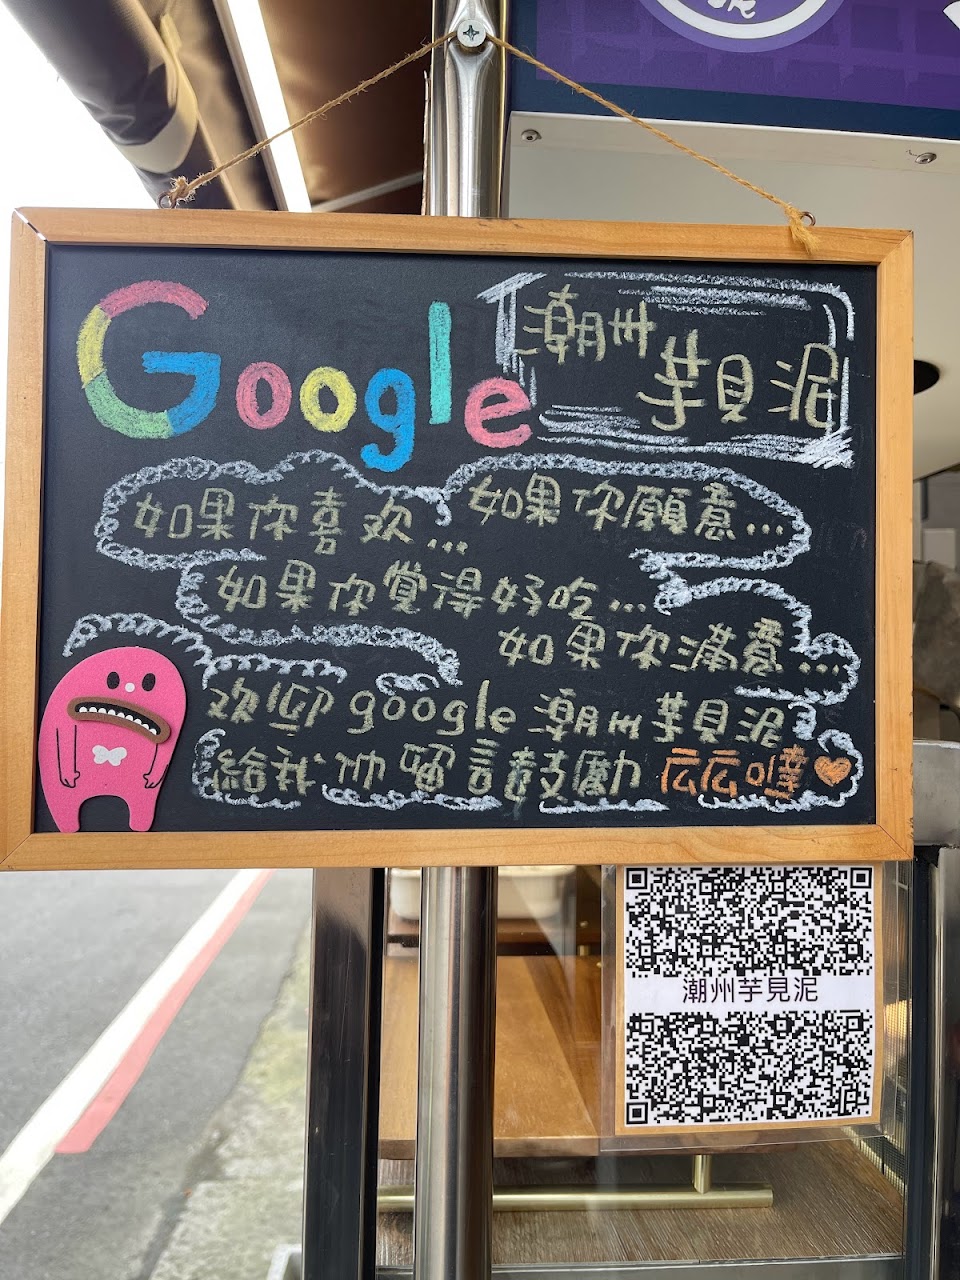 泥
Google
潮州
芋見泥
如果你喜欢...
如果你願意...
如果你覺得好吃...
如果你滿意...
欢迎google潮州芋見泥
給我们留言鼓勵
潮州芋見泥